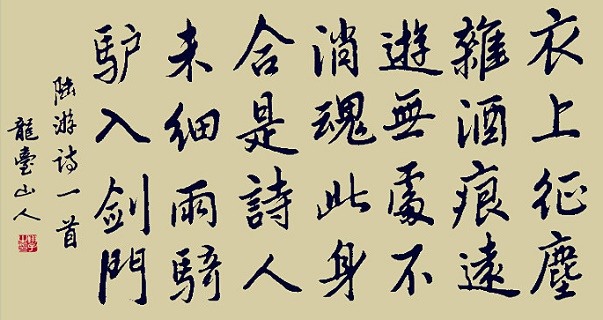 衣上征塵
雜酒痕遠
遊無處不
消魂此身
合是詩人
未細雨騎
驴入剑門
陸游诗一首
龍臺山人